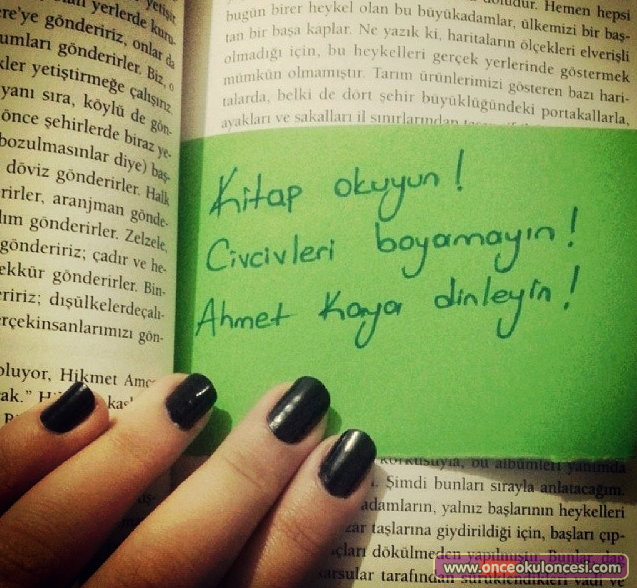 yerlerde kuru.
re'ye göndeririz, onlar da
umları gönderirler. Biz, o
kler yetiştirmeğe çalışırız.
yanı sıra, köylü de gön-
önce şehirlerde biraz ye-
bozulmasınlar diye) baş-
döviz gönderirler. Halk
rirler, aranjman gönde-
lım gönderirler. Zelzele,
göndeririz; çadır ve he-
ekkür gönderirler. Bin-
eririz; dışülkelerdeçalı-
erçekinsanlarımızı gön-
oluyor, Hikmet
ak."
Hemen hepsi
bugün birer heykel olan bu büyükadamlar, ülkemizi bir baş-
tan bir başa kaplar. Ne yazık ki, haritaların ölçekleri elverişli
olmadığı için, bu heykelleri gerçek yerlerinde göstermek
mümkün olmamıştır. Tarım ürünlerimizi gösteren bazı hari-
talarda, belki de dört şehir büyüklüğündeki portakallarla,
ayakları ve sakalları il sınırlarından
Kitap okuyun!
Civcivleri boyamayın!
Ahmet Kaya dinleyin!
korkusuyla, bu albümleri yanımda
Şimdi bunları sırayla anlatacağım.
adamların, yalnız başlarının heykelleri
taşlarına giydirildiği için, başları çıp-
dökülmeden yapılmıştır. Bunlar, dağ
tarafından
www.onceokuloncesi.com